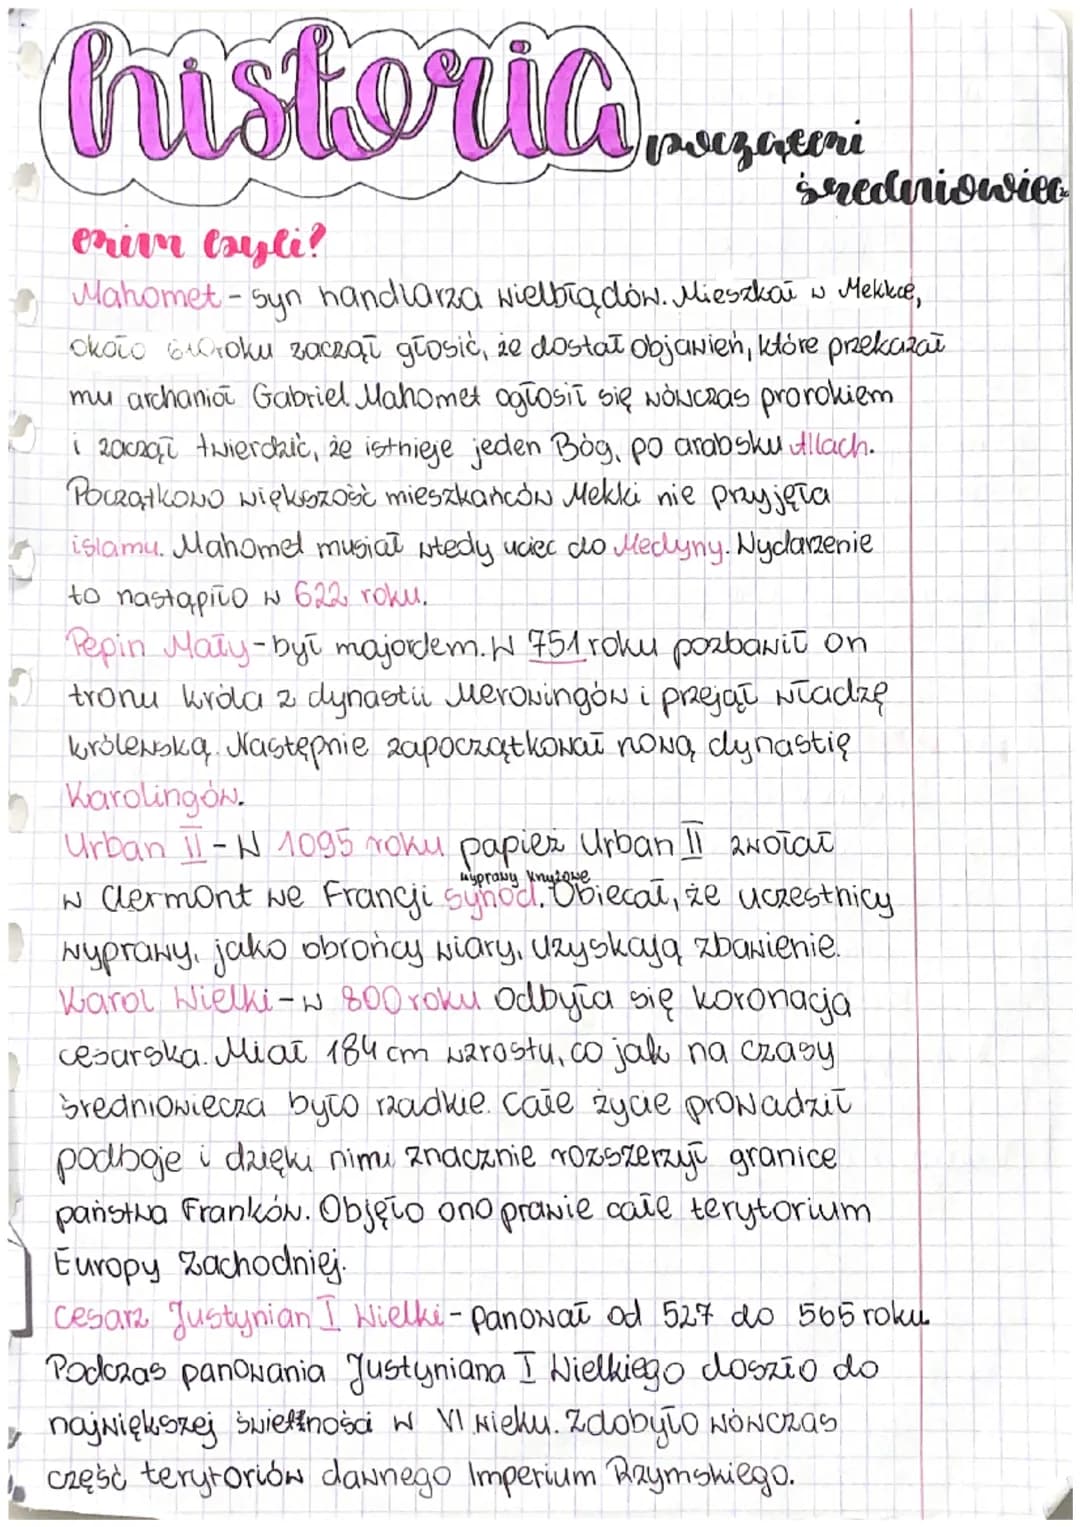 historia
początki
średniowiecz
kim byli?
Mahomet - syn handlarza wielbłądów. Mieszkał w Mekkce,
około 610 roku zaczął głosić, że dostał objawień, które przekazał
mu archanioł Gabriel. Mahomet ogłosił się wówczas prorokiem
i zaczął twierdzić, że istnieje jeden Bóg, po arabsku Allach.
Początkowo większość mieszkańców Mekki nie przyjęła
islamu. Mahomet musiał wtedy uciec do Medyny. Wydarzenie
to nastąpiło w 622 roku.
Pepin Mały - był majordem. W 751 roku pozbawił on
tronu króla z dynastii Merowingów i przejął władzę
królewską. Następnie zapoczątkował nową dynastię
Karolingów.
Urban II - W 1095 roku papież Urban II zwołał
wyprawy krzyżowe
w Clermont we Francji synod. Obiecał, że uczestnicy
wyprawy, jako obrońcy wiary, uzyskają zbawienie.
Karol Wielki - w 800 roku odbyła się koronacja
cesarska. Miał 184 cm wzrostu, co jak na czasy
średniowiecza było rzadkie. Całe życie prowadził
podboje i dzięki nimi znacznie rozszerzył granice
państwa Franków. Objęło ono prawie całe terytorium
Europy Zachodniej.
Cesarz Justynian I Wielki - panował od 527 do 565 roku.
Podczas panowania Justyniana I Wielkiego doszło do
największej świetności w VI wieku. Zdobyło wówczas
część terytoriów dawnego Imperium Rzymskiego.